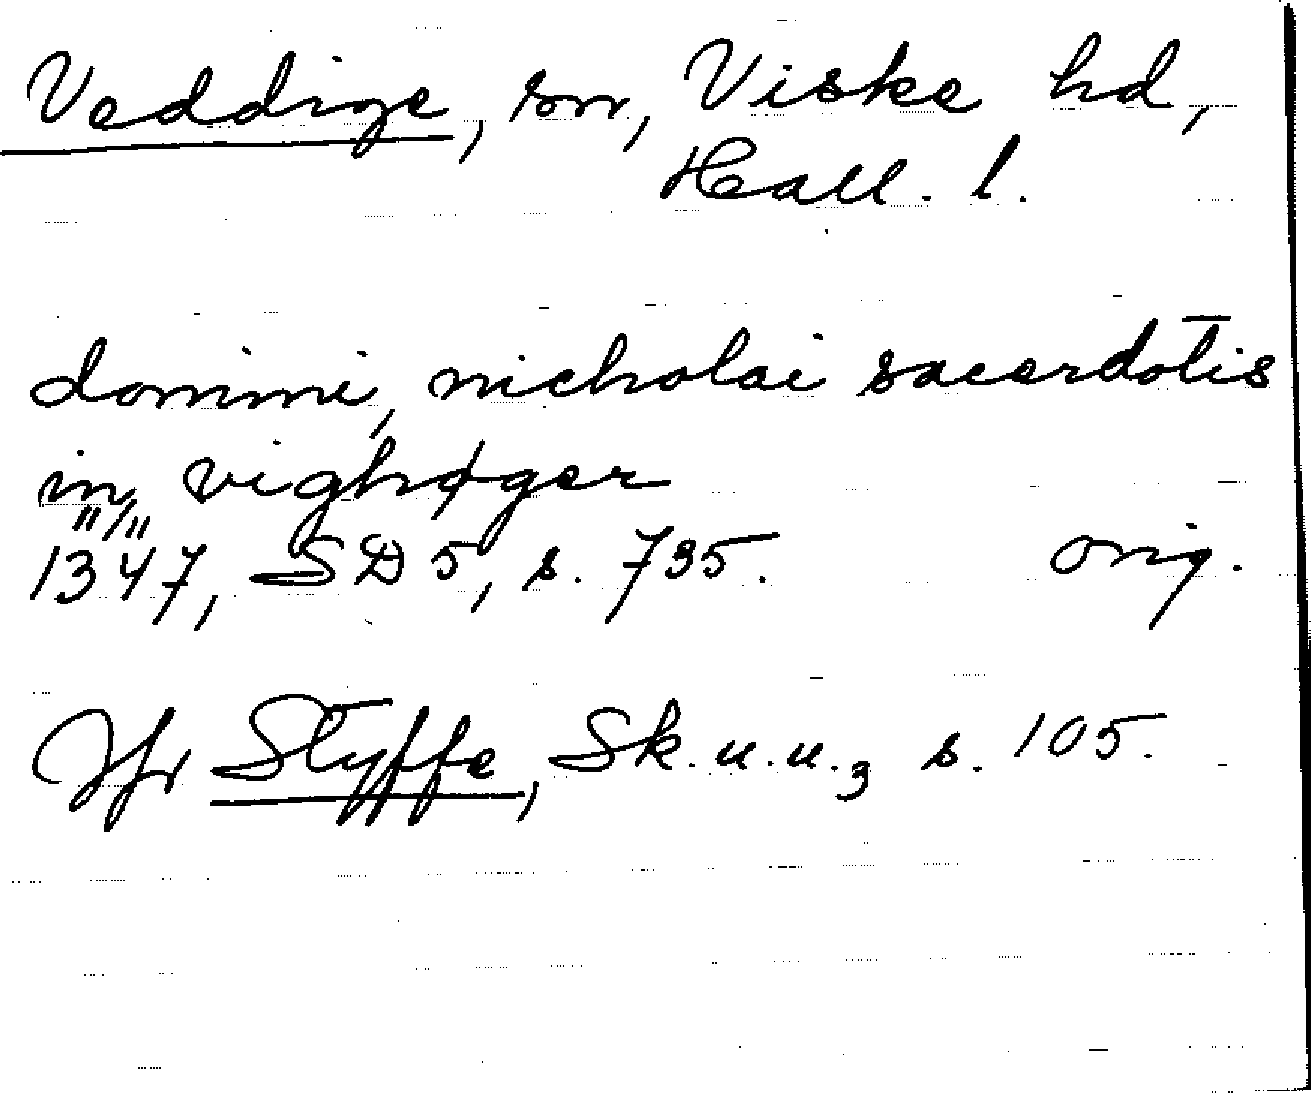 Veddige, sn, Viske hd,
Hall. l.
domini, nicholai sacerdotis
in, vighøger
1347, SD 5, s. 735. orig.
Jfr Styffe, Sk.u.u.3 s. 105.